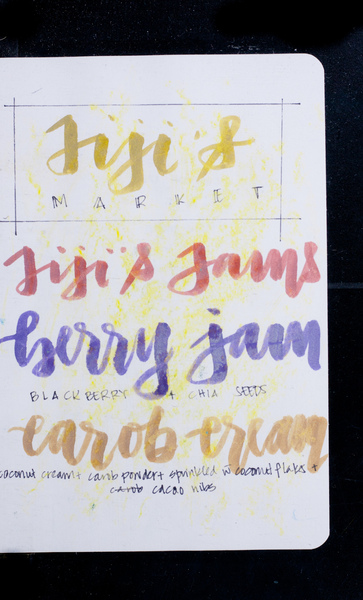 Jiji's
MARKET
Jiji's Jams
berry jam
BLACKBERRY + CHIA SEEDS
carob cream
coconut cream + carob powder + sprinkled w coconut flaks +
carob cacao nibs